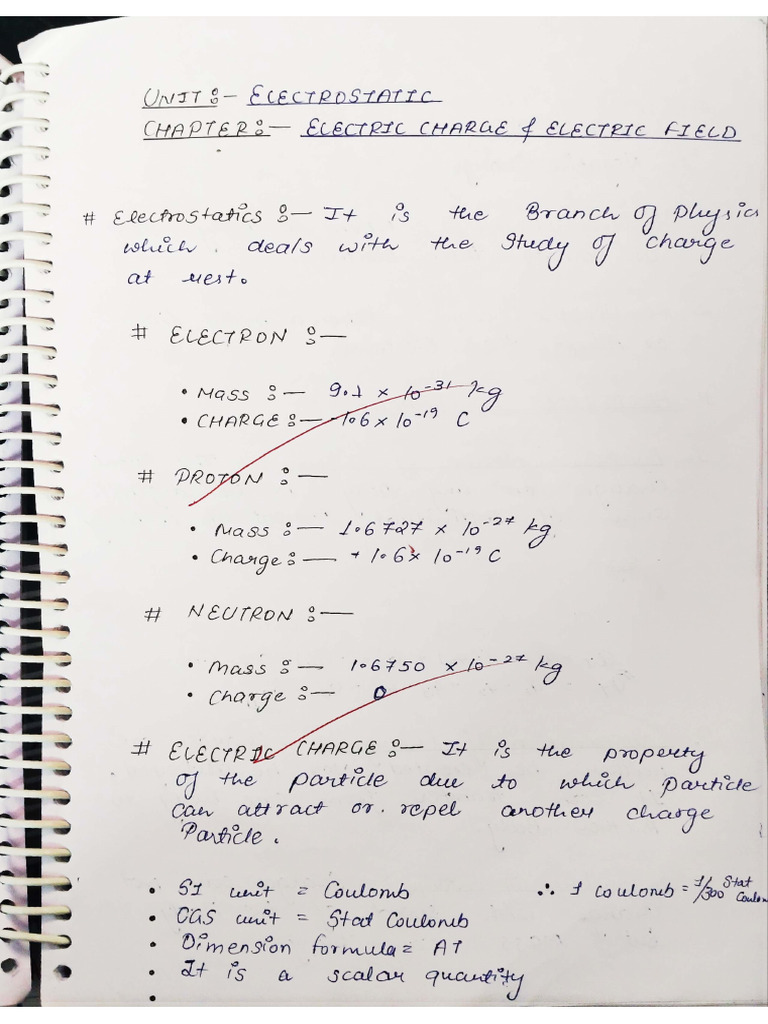 UNIT :- ELECTROSTATIC
CHAPTER :- ELECTRIC CHARGE & ELECTRIC FIELD
# Electrostatics :- It is the Branch of Physics
which deals with the Study of charge
at rest.
# ELECTRON :-
• Mass :- 9.1 × 10⁻³¹ kg
• CHARGE :- -1.6 × 10⁻¹⁹ C
# PROTON :-
• Mass :- 1.6727 × 10⁻²⁷ kg
• Charge :- + 1.6 × 10⁻¹⁹ C
# NEUTRON :-
• Mass :- 1.6750 × 10⁻²⁷ kg
• Charge :- 0
# ELECTRIC CHARGE :- It is the property
of the particle due to which particle
can attract or repel another charge
Particle.
• SI unit = Coulomb ∴ 1 coulomb = 1/300 Stat Coulom
• CGS unit = Stat Coulomb
• Dimension formula = AT
• It is a scalar quantity
•